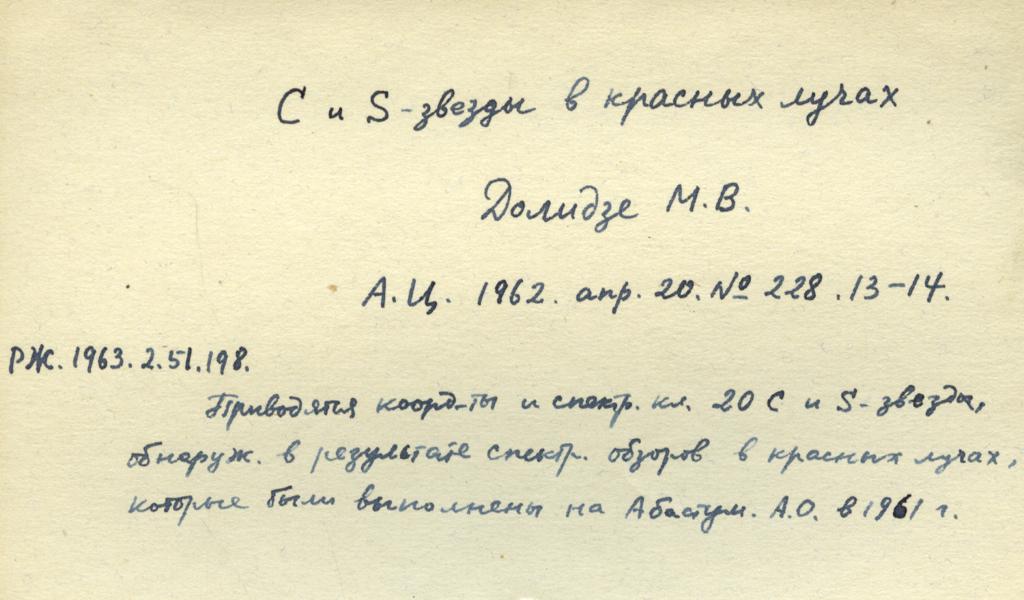 С и S-звезды в красных лучах
Долидзе М.В.
А.Ц. 1962. апр. 20. № 228. 13-14.
РЖ. 1963. 2.51.198.
Приводятся коорд-ты и спектр. кл. 20 С и S-звезды,
обнаруж. в результате спектр. обзоров в красных лучах,
которые были выполнены на Абастум. А.О. в 1961 г.